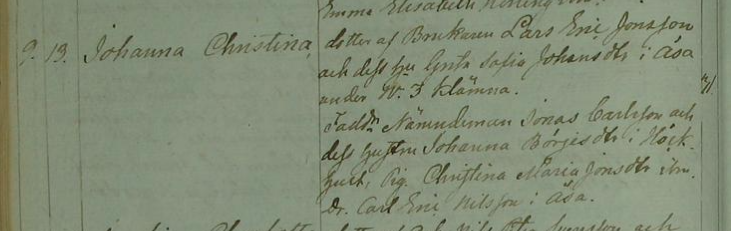 Emma Elisabeth
9. 13. Johanna Christina, dotter af Brukaren Lars Eric Jonsson
och dess Hu Greta Sofia Johansdtr i Åsa
under No 3 Klämna.
Faddr Nämndeman Jonas Carlsson och
dess hustru Johanna Börjesdtr i
Pig. Christina Maria Jonsdtr ibm.
Dr. Carl Eric Nilsson i Åsa.